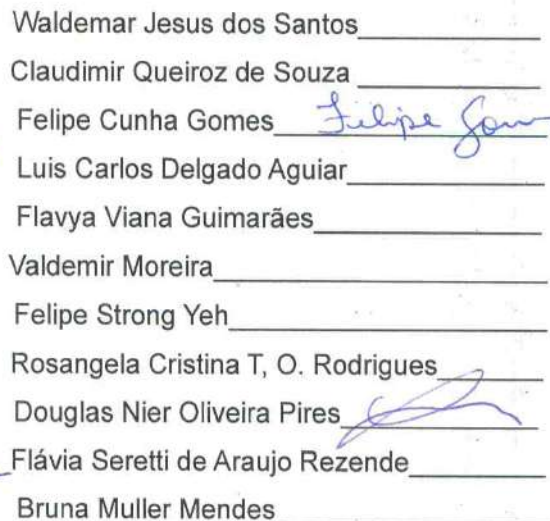 Waldemar Jesus dos Santos
Claudimir Queiroz de Souza
Felipe Cunha Gomes Felipe Gom
Luis Carlos Delgado Aguiar
Flavya Viana Guimarães
Valdemir Moreira
Felipe Strong Yeh
Rosangela Cristina T, O. Rodrigues
Douglas Nier Oliveira Pires
Flávia Seretti de Araujo Rezende
Bruna Muller Mendes